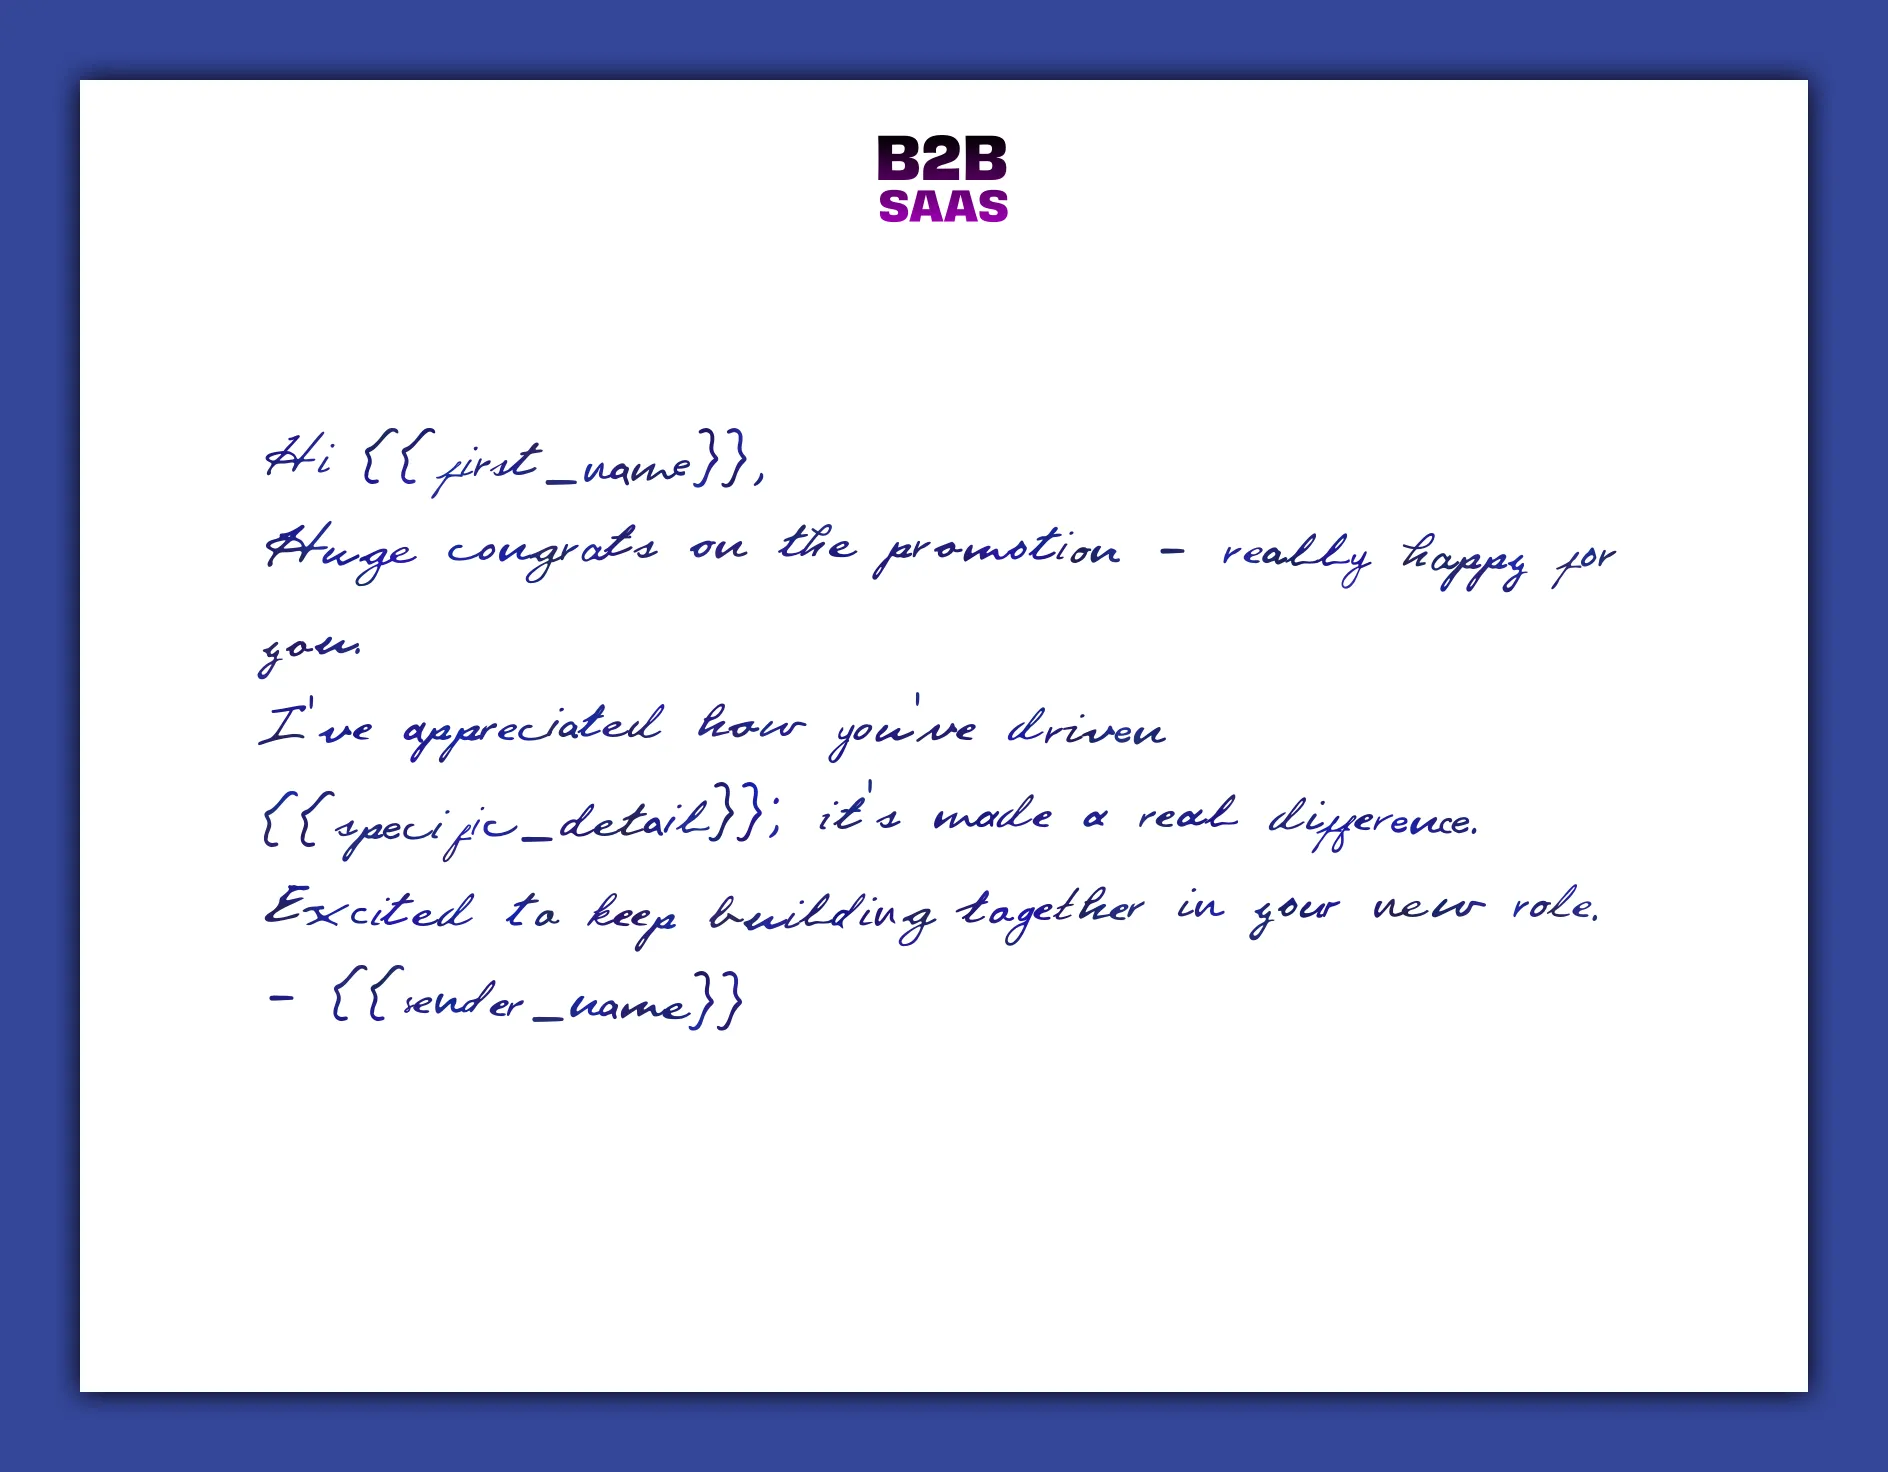 B2B
SAAS
Hi {{first_name}},
Huge congrats on the promotion - really happy for
you.
I've appreciated how you've driven
{{specific_detail}}; it's made a real difference.
Excited to keep building together in your new role.
- {{sender_name}}